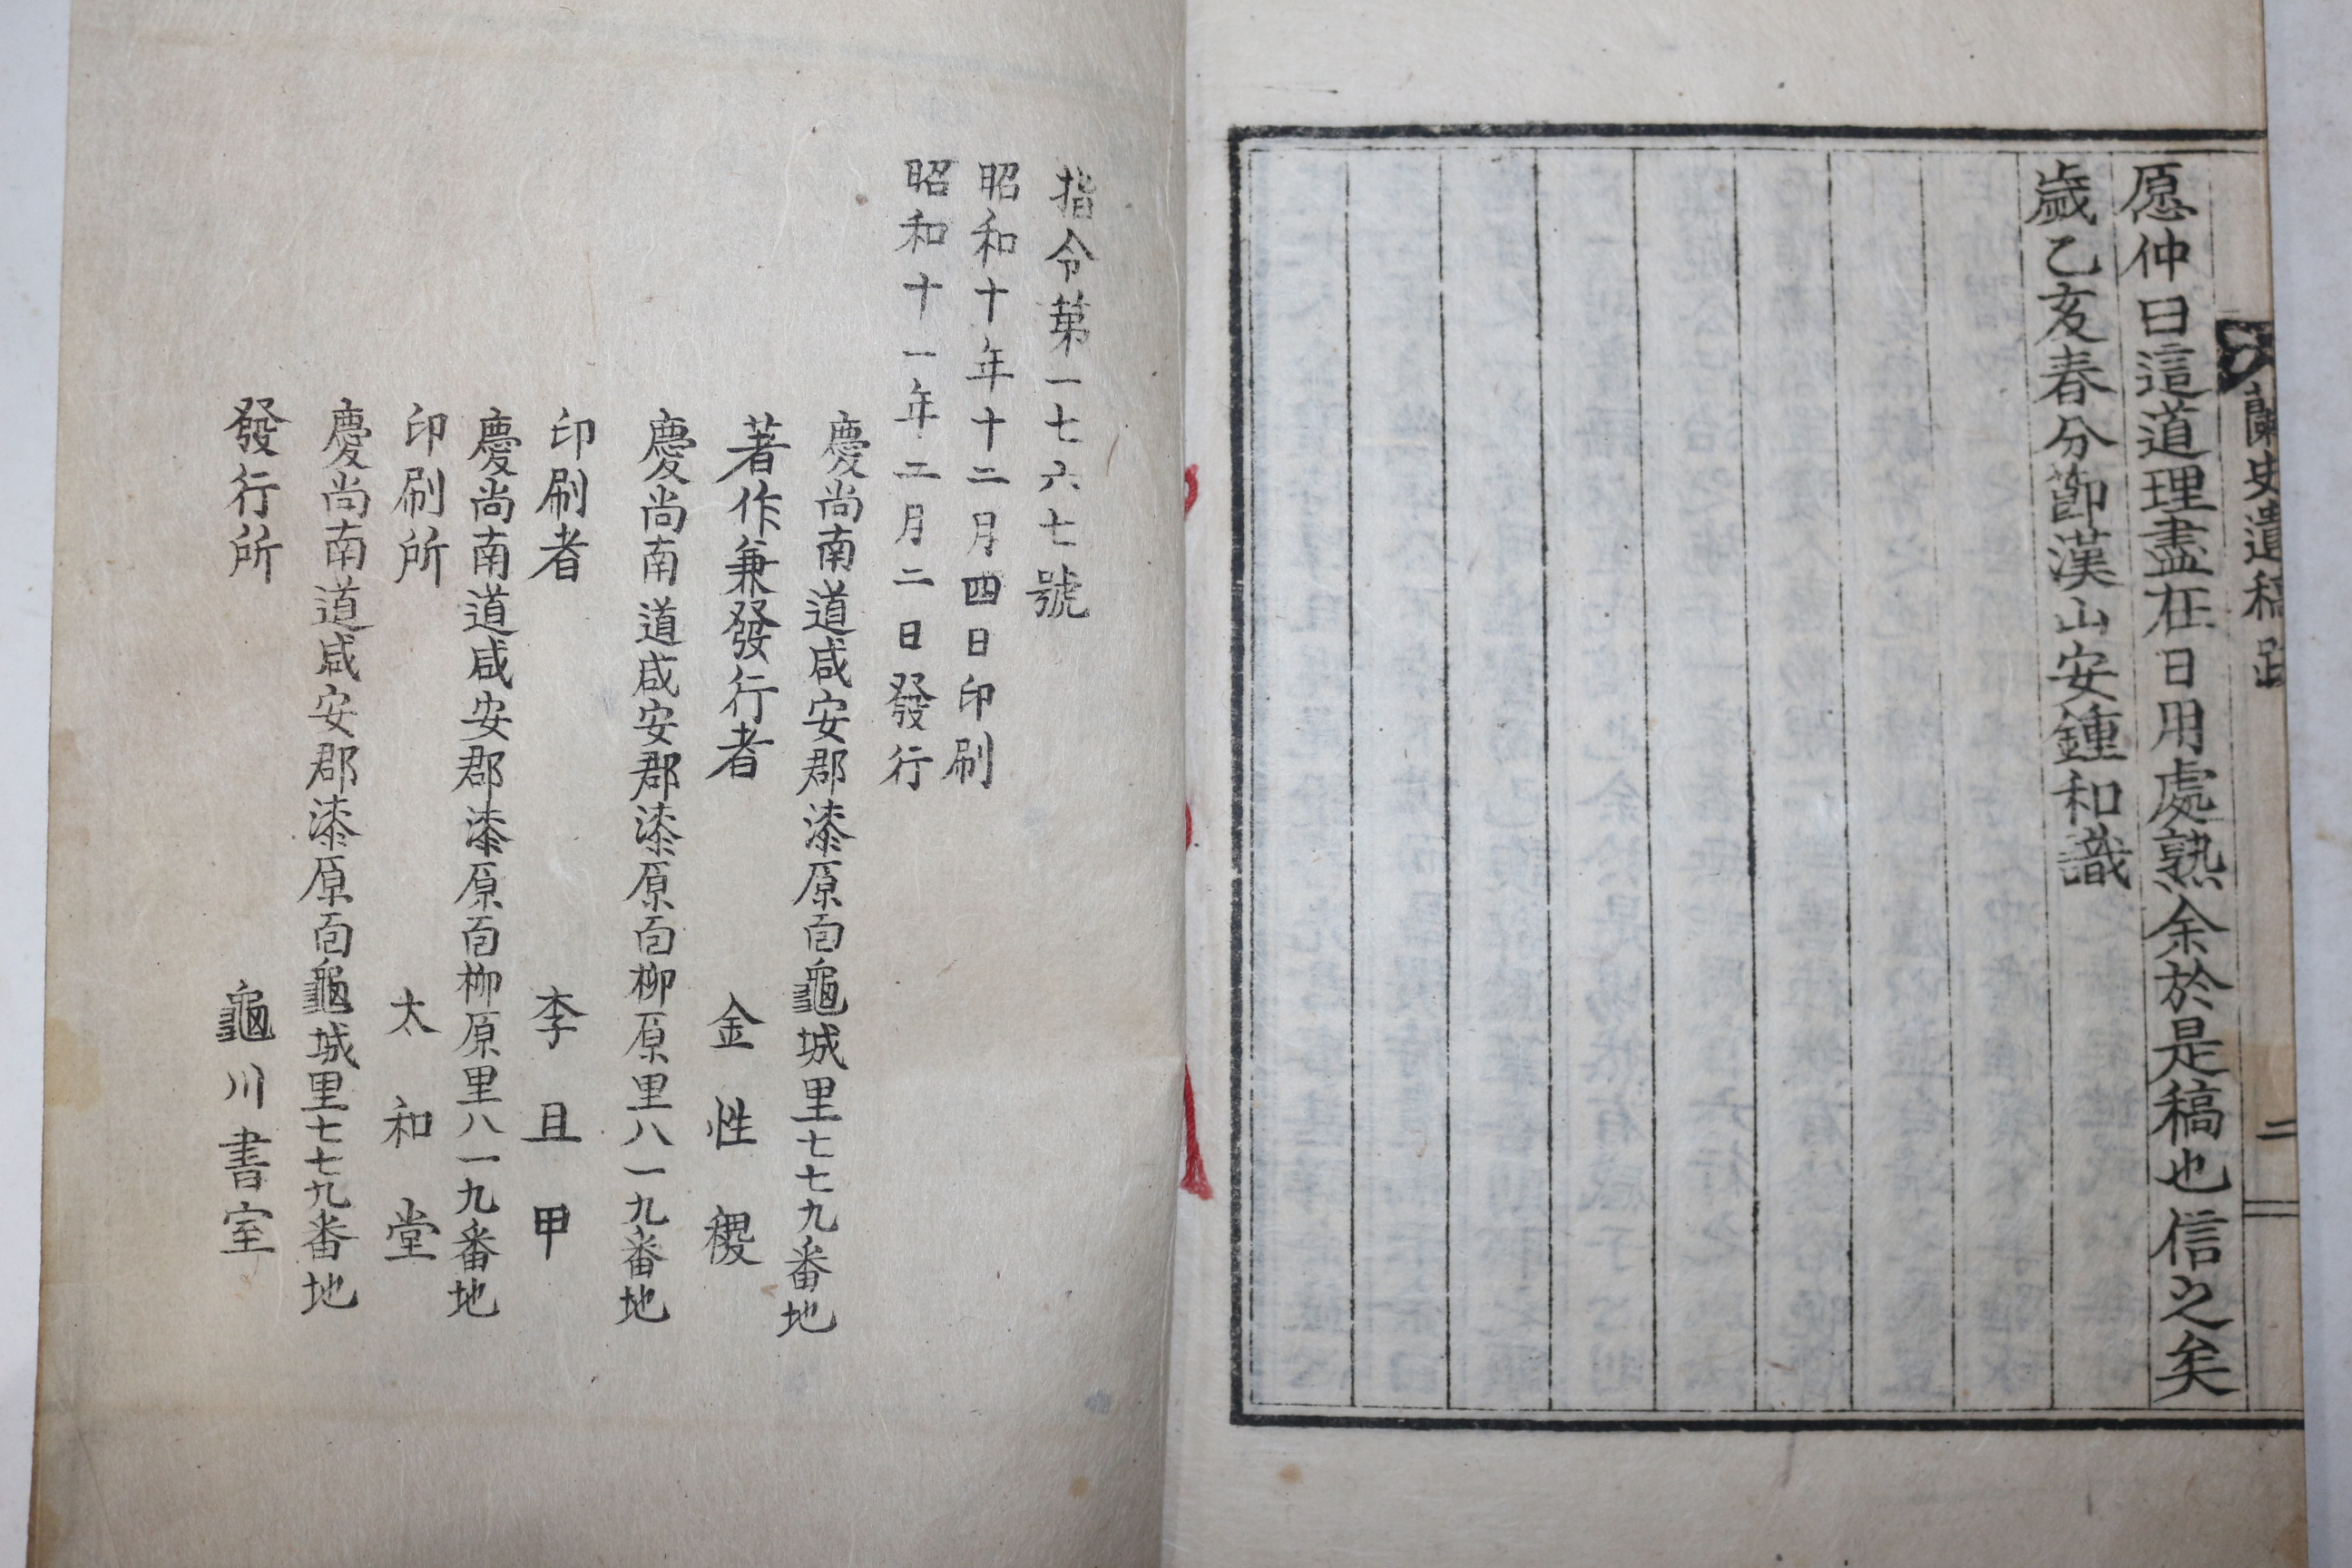 蘭史遺稿 跋 二
愿仲曰這道理盡在日用處熟余於是稿也信之矣
歲乙亥春分節漢山安鍾和識
指令第一七六七號
昭和十年十二月四日印刷
昭和十一年二月二日發行
慶尚南道咸安郡漆原面龜城里七七九番地
著作兼發行者 金性稷
慶尚南道咸安郡漆原面柳原里八一九番地
印刷者 李且甲
慶尚南道咸安郡漆原面柳原里八一九番地
印刷所 太和堂
慶尚南道咸安郡漆原面龜城里七七九番地
發行所 龜川書室